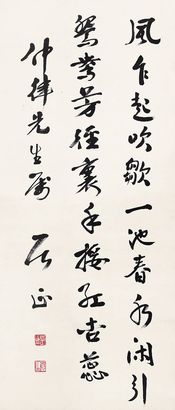 風乍起吹皺一池春水閑引
鴛鴦芳徑裏手挼紅杏蕊
仲律先生屬 居正